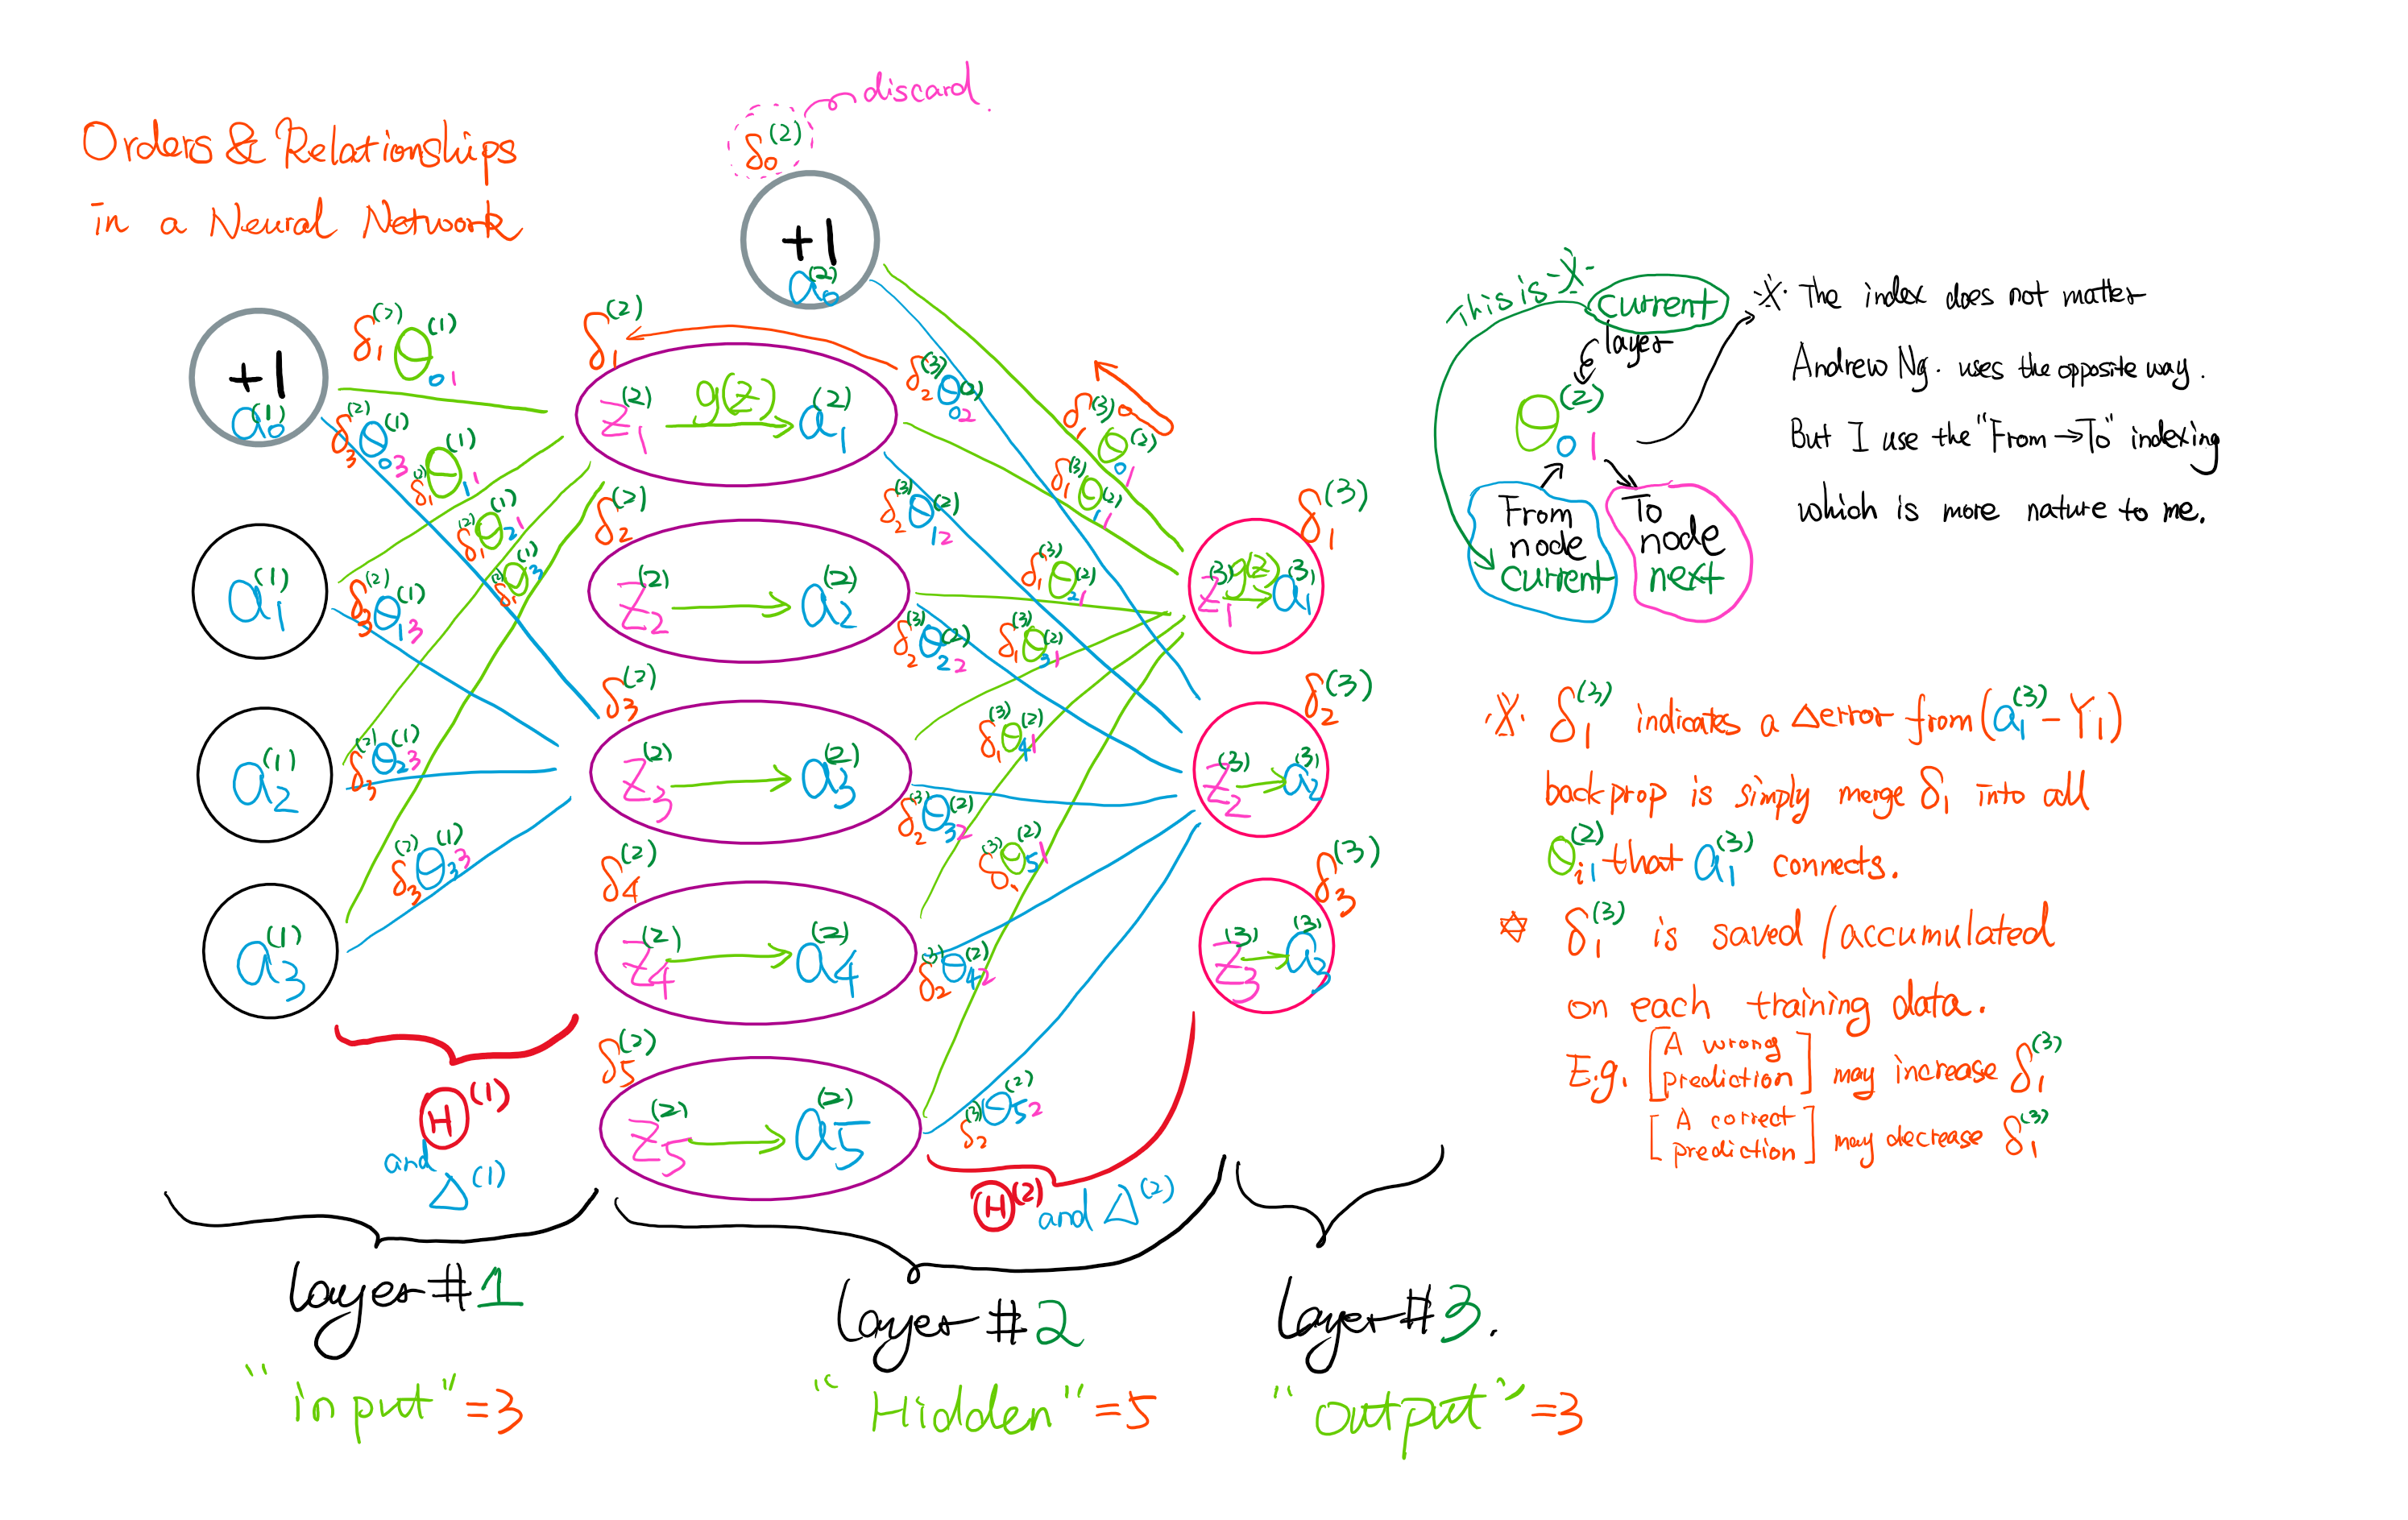 Orders & Relationships
in a Neural Network
discard.
δ₀⁽²⁾
+1
a₀⁽²⁾
+1
a₀⁽¹⁾
a₁⁽¹⁾
a₂⁽¹⁾
a₃⁽¹⁾
δ₁⁽²⁾ θ₀₁⁽¹⁾
δ₃⁽²⁾ θ₀₃⁽¹⁾
δ₁⁽²⁾ θ₁₁⁽¹⁾
δ₁⁽²⁾ θ₂₁⁽¹⁾
δ₁⁽²⁾ θ₃⁽¹⁾
δ₃⁽²⁾ θ₁₃⁽¹⁾
δ₃⁽²⁾ θ₂₃⁽¹⁾
δ₃⁽²⁾ θ₃₃⁽¹⁾
δ₁⁽²⁾
z₁⁽²⁾ g(z) a₁⁽²⁾
δ₂⁽²⁾
z₂⁽²⁾ → a₂⁽²⁾
δ₃⁽²⁾
z₃⁽²⁾ → a₃⁽²⁾
δ₄⁽²⁾
z₄⁽²⁾ → a₄⁽²⁾
δ₅⁽²⁾
z₅⁽²⁾ → a₅⁽²⁾
δ₂⁽³⁾ θ₀₂⁽²⁾
δ₁⁽³⁾ θ₀₁⁽²⁾
δ₁⁽³⁾ θ₁₁⁽²⁾
δ₂⁽³⁾ θ₁₂⁽²⁾
δ₁⁽³⁾ θ₂₁⁽²⁾
δ₂⁽³⁾ θ₂₂⁽²⁾
δ₁⁽³⁾ θ₃₁⁽²⁾
δ₁⁽³⁾ θ₄₁⁽²⁾
δ₂⁽³⁾ θ₃₂⁽²⁾
δ₁⁽³⁾ θ₅₁⁽²⁾
δ₂⁽³⁾ θ₄₂⁽²⁾
δ₂⁽³⁾ θ₅₂⁽²⁾
δ₁⁽³⁾
z₁⁽³⁾ g(z) a₁⁽³⁾
δ₂⁽³⁾
z₂⁽³⁾ → a₂⁽³⁾
δ₃⁽³⁾
z₃⁽³⁾ → a₃⁽³⁾
Θ⁽¹⁾
and
Δ⁽¹⁾
Θ⁽²⁾ and Δ⁽²⁾
layer #1
"input" =3
layer #2
"Hidden" =5
layer #3.
"output" =3
This is ※
current
layer
θ₀₁⁽²⁾
From
node
current
To
node
next
※ The index does not matter
Andrew Ng. uses the opposite way.
But I use the "From → To" indexing
which is more nature to me.
※ δ₁⁽³⁾ indicates a Δerror from (a₁⁽³⁾ - Y₁)
backprop is simply merge δ₁ into all
θᵢ₁⁽²⁾ that a₁⁽³⁾ connects.
✡ δ₁⁽³⁾ is saved / accumulated
on each training data.
E.g. [A wrong prediction] may increase δ₁⁽³⁾
[A correct prediction] may decrease δ₁⁽³⁾